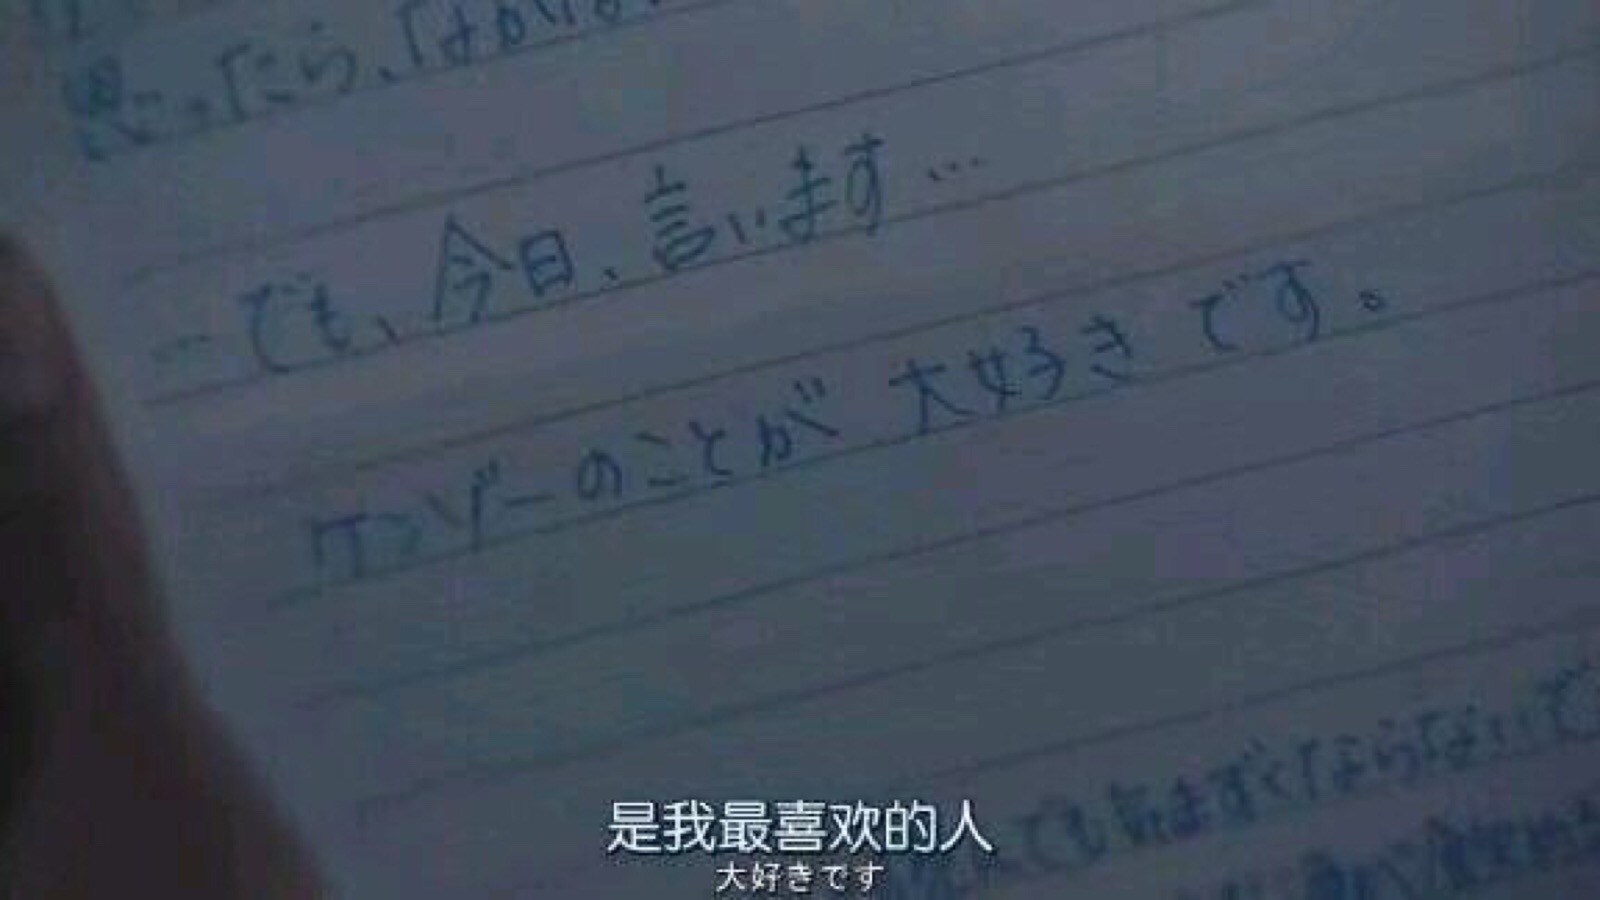 思ったら、
…でも、今日、言います…
ケンゾーのことが 大好き です。
でも気まずくならないで
是我最喜欢的人
大好きです